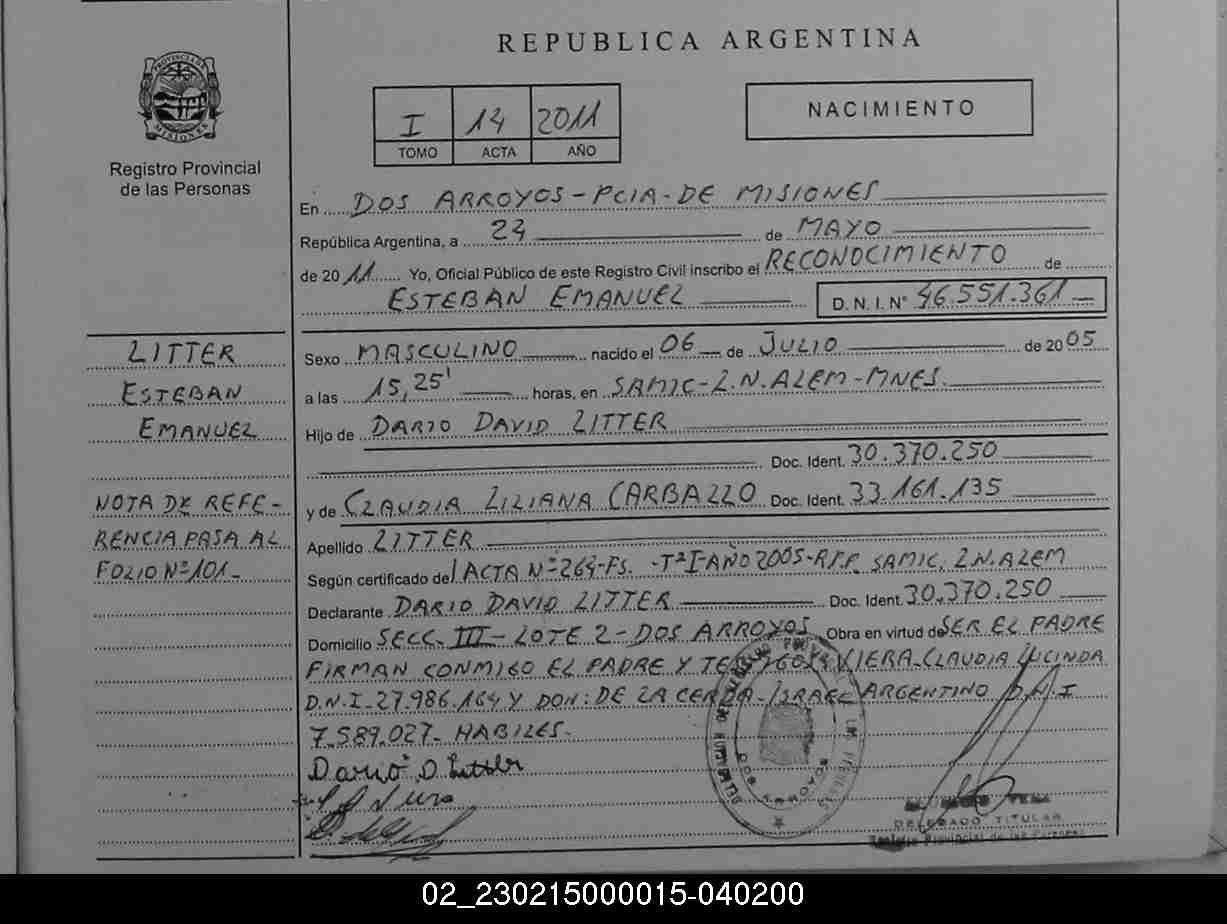 REPUBLICA ARGENTINA
PROVINCIA DE
MISIONES
Registro Provincial
de las Personas
I 14 2011
TOMO ACTA AÑO
NACIMIENTO
En DOS ARROYOS - PCIA - DE MISIONES
República Argentina, a 24 de MAYO
de 2011 Yo, Oficial Público de este Registro Civil inscribo el RECONOCIMIENTO de
ESTEBAN EMANUEL D. N. I. N° 46.551.361
LITTER
ESTEBAN
EMANUEL
NOTA DE REFE-
RENCIA PASA AL
FOLIO Nº 101-
Sexo MASCULINO nacido el 06 de JULIO de 2005
a las 15,25' horas, en SAMIC - L.N. ALEM - MNES.
Hijo de DARIO DAVID LITTER
Doc. Ident. 30.370.250
y de CLAUDIA LILIANA CARBALLO Doc. Ident. 33.161.135
Apellido LITTER
Según certificado del ACTA Nº 264-Fs. -Tº I-AÑO 2005-R.P.P. SAMIC. L.N. ALEM
Declarante DARIO DAVID LITTER Doc. Ident. 30.370.250
Domicilio SECC. III - LOTE 2 - DOS ARROYOS Obra en virtud de SER EL PADRE
FIRMAN CONMIGO EL PADRE Y TESTIGOS: VIERA-CLAUDIA LUCINDA
D.N.I. 27.986.164 Y DON: DE LA CERDA-ISRAEL ARGENTINO D.N.I
7.589.027- HABILES-
Dario D. Litter
DOS ARROYOS
DELEGADO TITULAR
Registro Provincial de las Personas
02_230215000015-040200